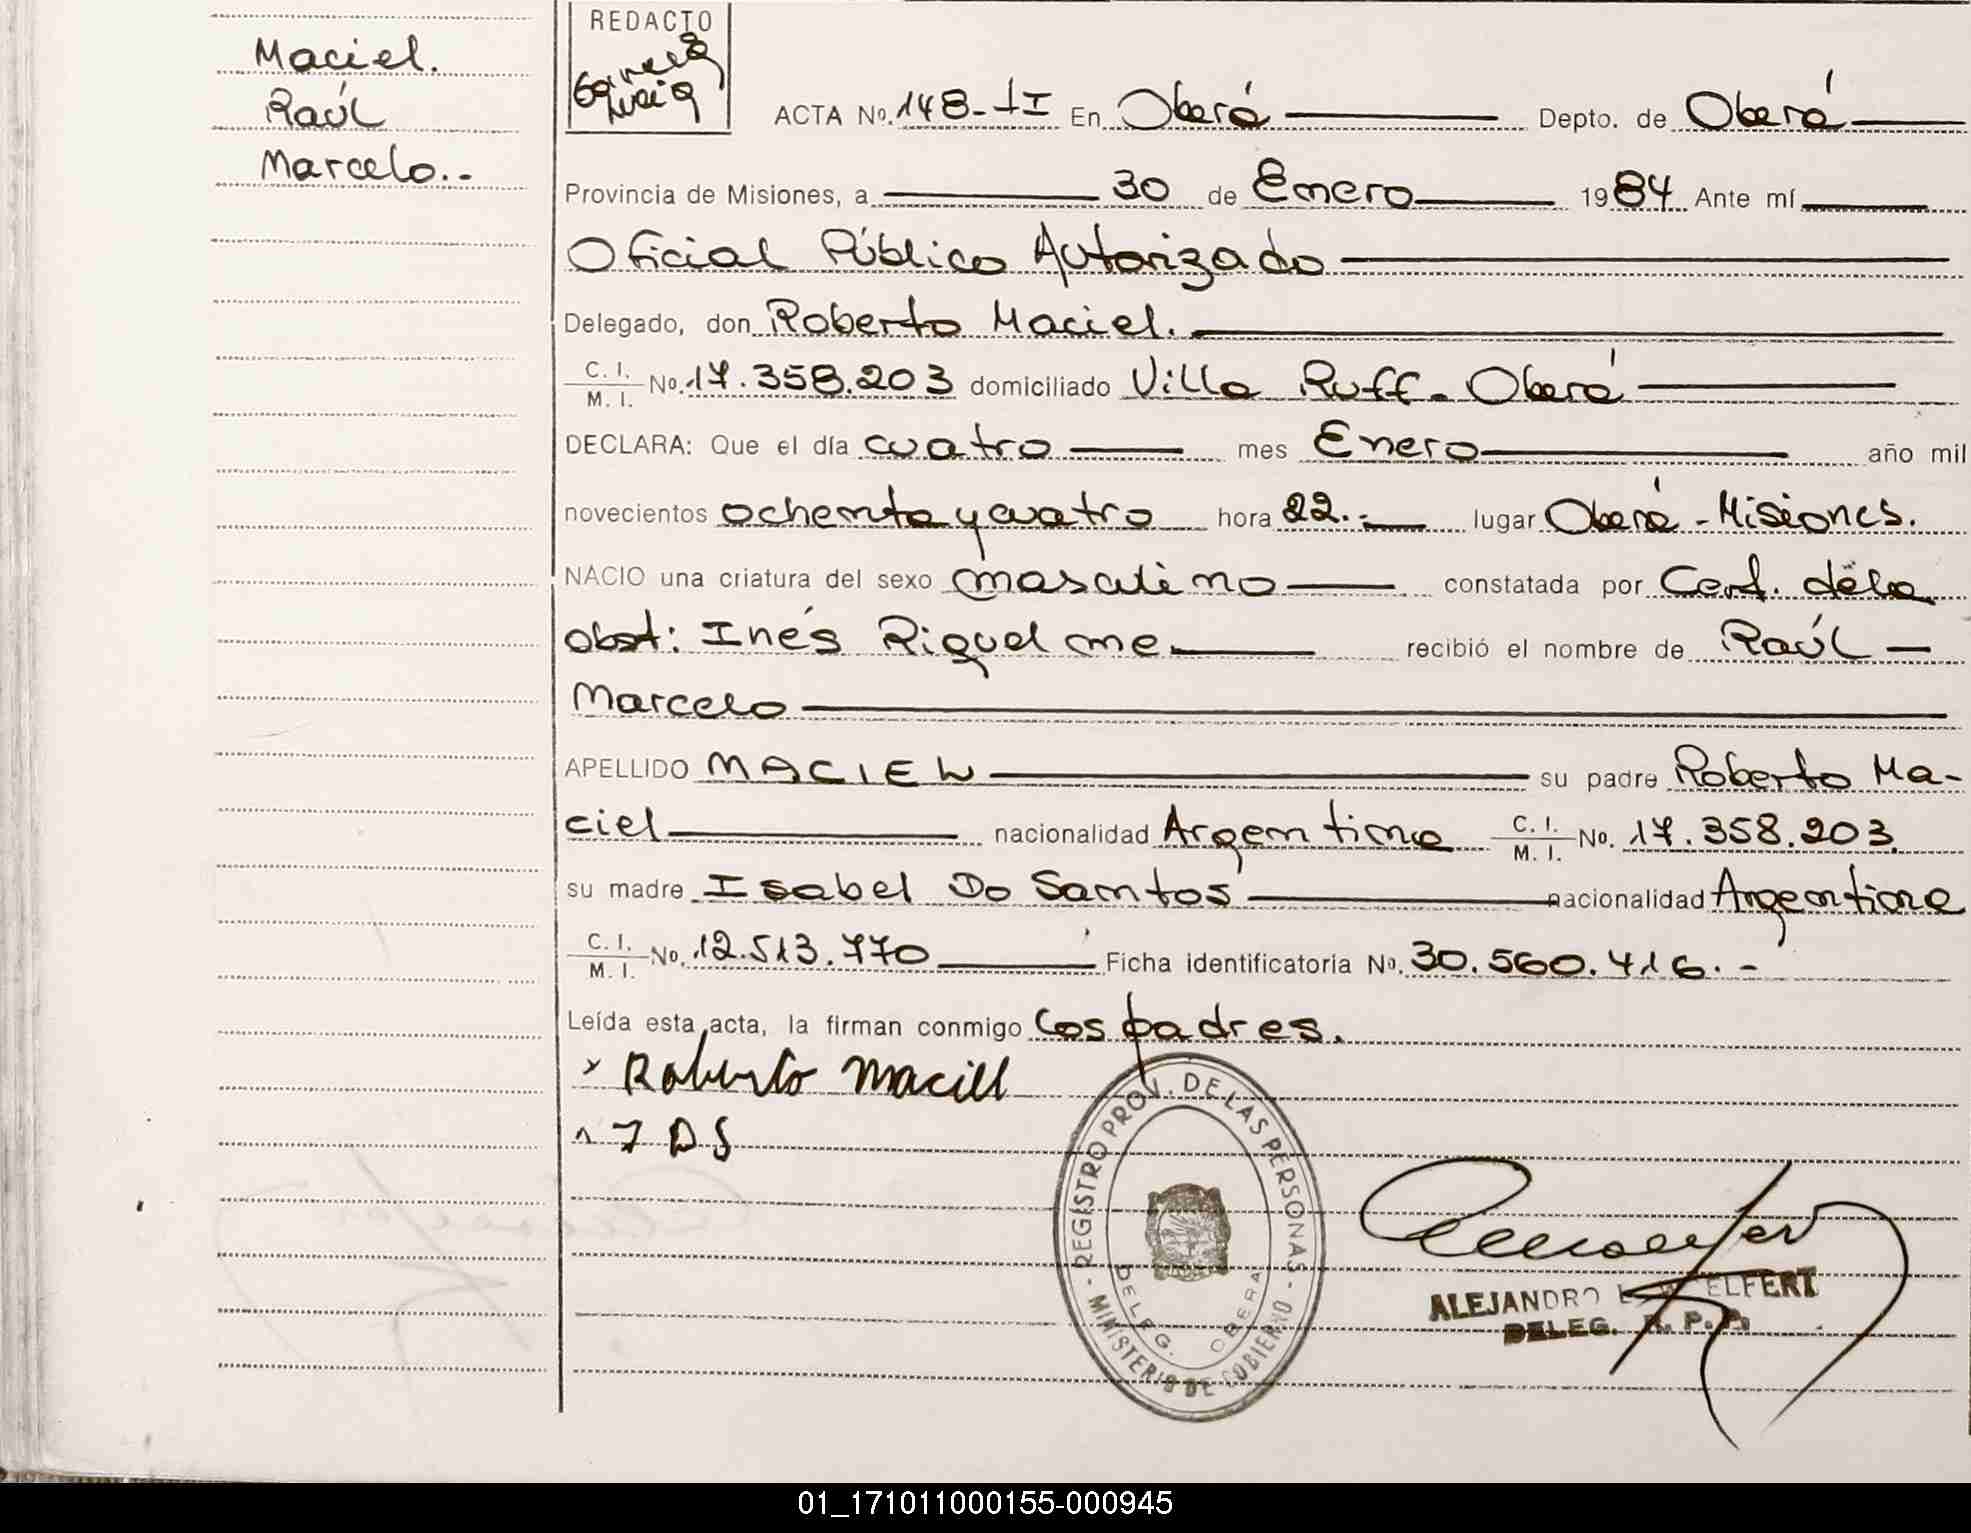 Maciel.
Raúl
Marcelo.-
REDACTO
ACTA No. 148-TI En Oberá Depto. de Oberá
Provincia de Misiones, a 30 de Enero 1984 Ante mí
Oficial Público Autorizado
Delegado, don Roberto Maciel.
C. I. / M. I. No. 17.358.203 domiciliado Villa Ruff - Oberá
DECLARA: Que el día cuatro mes Enero año mil
novecientos ochenta y cuatro hora 22.- lugar Oberá - Misiones.
NACIO una criatura del sexo masculino constatada por Cert. de la
obst: Inés Riquelme recibió el nombre de Raúl
Marcelo
APELLIDO MACIEL su padre Roberto Ma-
ciel nacionalidad Argentina C. I. / M. I. No. 17.358.203
su madre Isabel Do Santos nacionalidad Argentina
C. I. / M. I. No. 12.513.770 Ficha identificatoria No. 30.560.416.-
Leída esta acta, la firman conmigo los padres.
x Roberto Maciel
DS
REGISTRO PROV. DE LAS PERSONAS - MINISTERIO DE GOBIERNO -
DELEG. OBERA
ALEJANDRO ELFERT
DELEG. R. P. P.
01_171011000155-000945